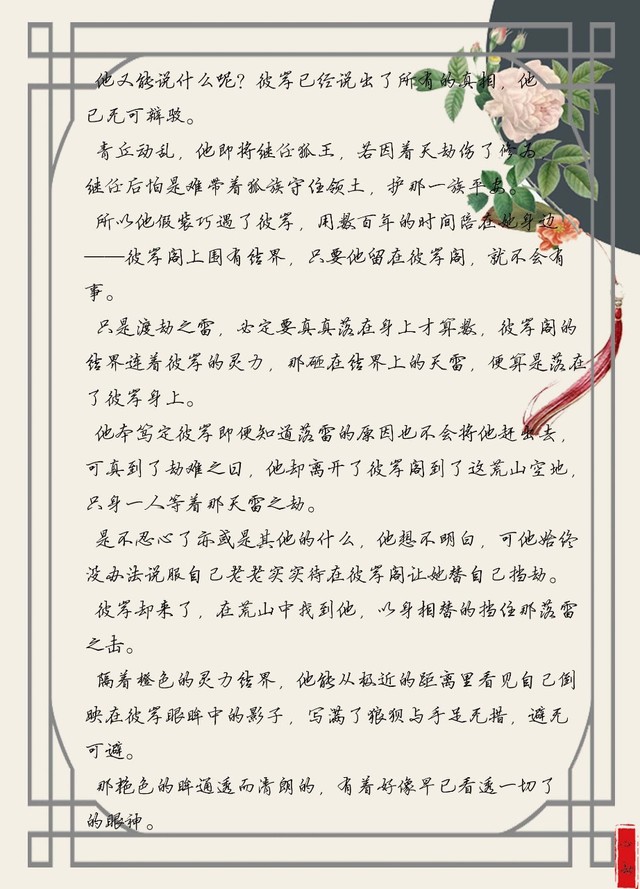 他又能说什么呢？彼岸已经说出了所有的真相，他
已无可辩驳。
青丘动乱，他即将继任狐王，若因着天劫伤了修为，
继任后怕是难带着狐族守住领土，护那一族平安。
所以他假装巧遇了彼岸，用数百年的时间陪在她身边
——彼岸阁上围有结界，只要他留在彼岸阁，就不会有
事。
只是渡劫之雷，必定要真真落在身上才算数，彼岸阁的
结界连着彼岸的灵力，那砸在结界上的天雷，便算是落在
了彼岸身上。
他本笃定彼岸即便知道落雷的原因也不会将他赶出去，
可真到了劫难之日，他却离开了彼岸阁到了这荒山空地，
只身一人等着那天雷之劫。
是不忍心了亦或是其他的什么，他想不明白，可他始终
没办法说服自己老老实实待在彼岸阁让她替自己挡劫。
彼岸却来了，在荒山中找到他，以身相替的挡住那落雷
之击。
隔着橙色的灵力结界，他能从极近的距离里看见自己倒
映在彼岸眼眸中的影子，写满了狼狈与手足无措，避无
可避。
那艳色的眸通透而清朗的，有着好像早已看透一切了
的眼神。